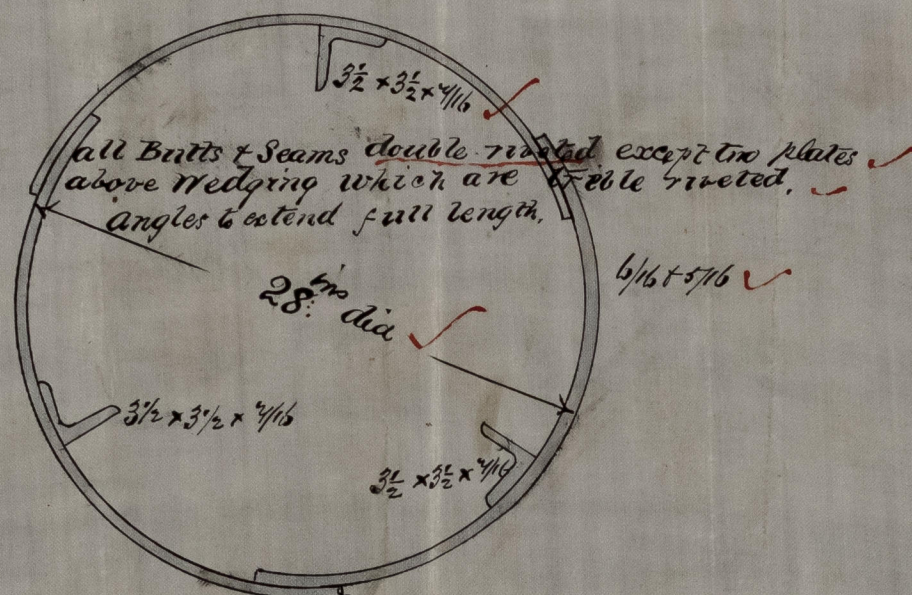 3½ × 3½ × 7/16
all Butts & Seams double riveted except two plates
above Wedging which are treble riveted.
Angles to extend full length.
6/16 & 5/16
28 ins dia
3½ × 3½ × 7/16
3½ × 3½ × 7/16